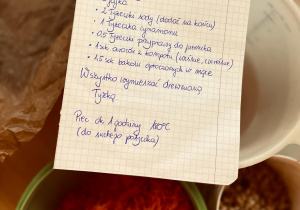 • 2 łyżeczki sody (dodać na końcu)
• 1 łyżeczka cynamonu
• 0,5 łyżeczki przyprawy do piernika
• 1 szk. owoców z kompotu (wiśnie,
• 1,5 szk. bakalii oproszonych w mące
Wszystko wymieszać drewnianą
łyżką.
Piec ok. 1 godziny 180°C
(do suchego patyczka)